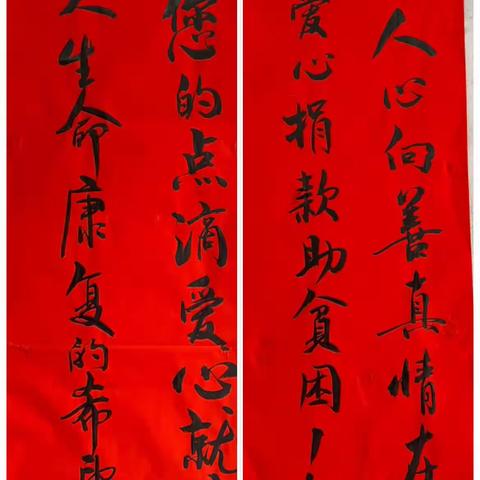 人心向善真情在
爱心捐款助贫困
您的点滴爱心就
人生命康复的希望